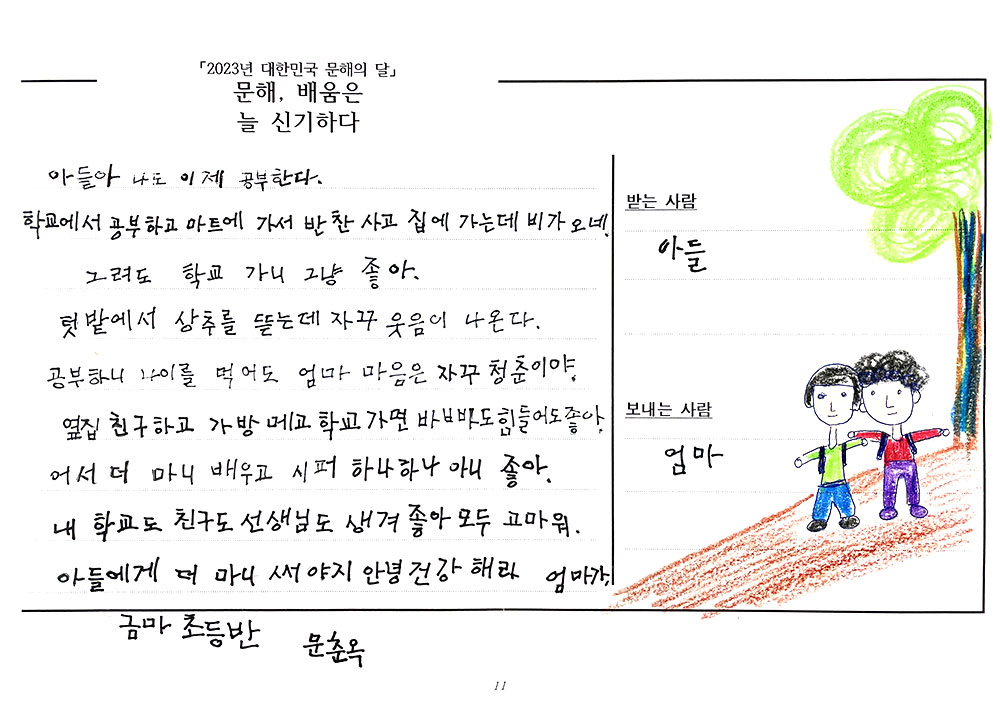 「2023년 대한민국 문해의 달」
문해, 배움은
늘 신기하다
아들아 나도 이제 공부한다.
학교에서 공부하고 마트에 가서 반찬 사고 집에 가는데 비가 오네.
그려도 학교 가니 그냥 좋아.
텃밭에서 상추를 뜯는데 자꾸 웃음이 나온다.
공부하니 나이를 먹어도 엄마 마음은 자꾸 청춘이야.
옆집 친구하고 가방 메고 학교 가면 바뻐도 힘들어도 좋아.
어서 더 마니 배우고 시퍼 하나하나 아니 좋아.
내 학교도 친구도 선생님도 생겨 좋아 모두 고마워.
아들에게 더 마니 써야지 안녕 건강 해라 엄마가.
금마 초등반 문춘옥
받는 사람
아들
보내는 사람
엄마
11